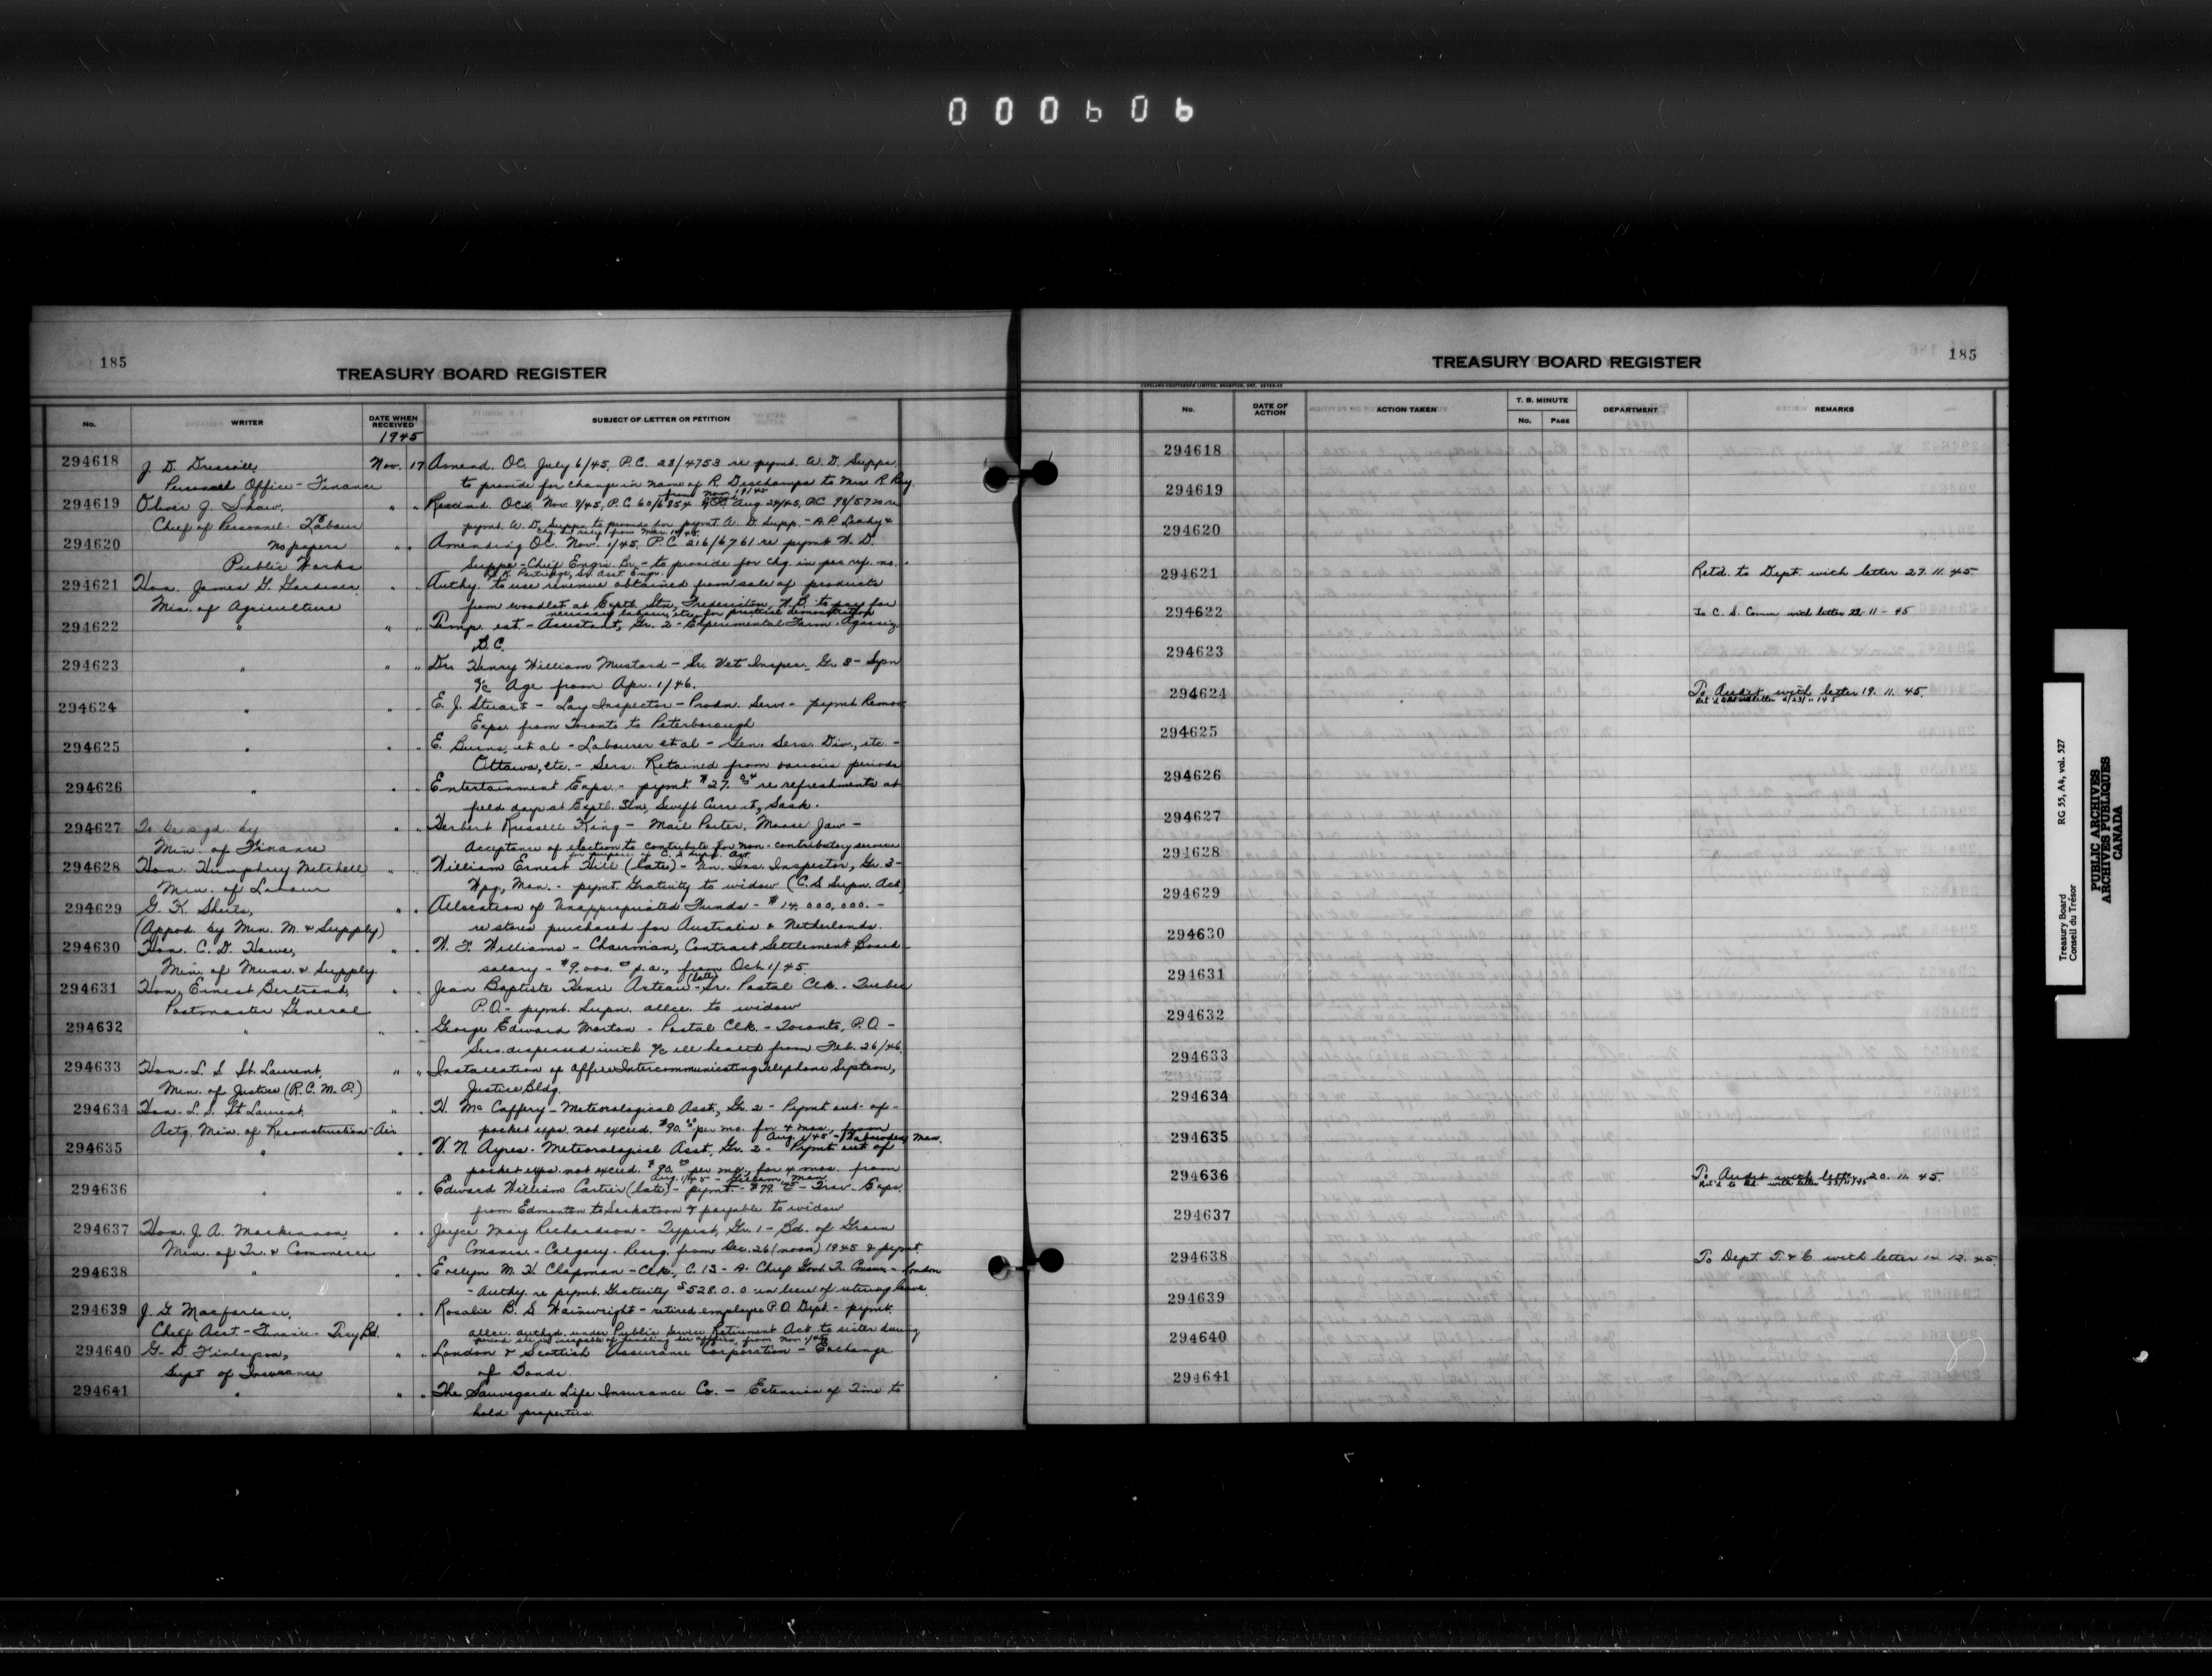 000606
185
TREASURY BOARD REGISTER
No.
WRITER
DATE WHEN RECEIVED
SUBJECT OF LETTER OR PETITION
1945
294618 J. D. Driscoll, Nov. 17 Amend. OC. July 6/45, P.C. 23/4753 re pymt. W. D. Supps.
Personnel Office - Finance to provide for change in name of R. Deschamps to Mrs R Roy.
from Nov. 19/45
294619 Oliver J. Shaw, " " Rescind. OCs. Nov. 8/45, P.C. 60/6854 & OC. Aug. 29/45, P.C. 98/5720 re
Chief of Personnel - Labour pymt. W. D. Supps. to provide for pymt. W. D. Supp. - A. P. Leady &
from Mar. 14/45
294620 no papers " " Amending OC. Nov. 1/45, P.C. 216/6761 re pymt. W. D.
Public Works Supps - Chief Engrs. Br. - to provide for chg. in pos. ref. no.
K. Partridge, Sr. Asst. Engr.
294621 Hon. James G. Gardiner, " " Authy. to use revenue obtained from sale of products
Min. of Agriculture from woodlot at Exptl. Stn., Fredericton, N.B. to pay for
necessary labour, etc. for practical demonstration
294622 " " " Temp. est. - Assistant, Gr. 2 - Experimental Farm - Agassiz
B.C.
294623 " " " Dr. Henry William Mustard - Sr. Vet. Inspec. Gr. 3 - Supn
a/c Age from Apr. 1/46.
294624 " " " E. J. Stuart - Lay Inspector - Prodn. Serv. - pymt. Remov.
Exps. from Toronto to Peterborough
294625 " " " E. Burns, et al - Labourer et al - Gen. Sers. Div., etc. -
Ottawa, etc. - Sers. Retained from various periods
294626 " " " Entertainment Exps. - pymt. $27. re refreshments at
field days at Exptl. Stn., Swift Current, Sask.
294627 To be sgd. by " " Herbert Russell King - Mail Porter, Moose Jaw -
Min. of Finance Acceptance of election to contribute for non-contributory service
for purposes of C. S. Supn. Act
294628 Hon. Humphrey Mitchell, " " William Ernest Hill (late) - Un. Ins. Inspector, Gr. 3 -
Min. of Labour Wpg., Man. - pymt. Gratuity to widow (C.S. Supn. Act)
294629 G. K. Sheils, " " Allocation of Unappropriated Funds - $14,000,000. -
(Appvd. by Min. M. & Supply) re stores purchased for Australia & Netherlands.
294630 Hon. C. D. Howe, " " W. F. Williams - Chairman, Contract Settlement Board -
Min. of Muns. & Supply. salary - $9,000.00 p.a., from Oct. 1/45.
(late)
294631 Hon. Ernest Bertrand, " " Jean Baptiste Henri Arteau - Sr. Postal Clk. - Quebec
Postmaster General P.O. - pymt. Supn. allce. to widow
294632 " " " George Edward Morton - Postal Clk. - Toronto, P.O. -
Sers. dispensed with a/c ill health from Feb. 26/46.
294633 Hon. L. S. St. Laurent, " " Installation of Office Intercommunicating Telephone System,
Min. of Justice (R.C.M.P.) Justice Bldg.
294634 Hon. L. S. St. Laurent, " " H. McCaffery - Meteorological Asst., Gr. 2 - Pymt. out-of-
Actg. Min. of Reconstruction - Air pocket exps. not exceed. $90.00 per mo. for 4 mos., from
Aug. 1/45 - Man.
294635 " " " V. N. Ayres - Meteorological Asst. Gr. 2 - Pymt. out of
pocket exps. not exceed. $90.00 per mo., for 4 mos. from
Aug. 1/45 - Gillam, Man.
294636 " " " Edward William Cartier (late) - pymt. - $79. - Trav. Exps.
from Edmonton to Saskatoon & payable to widow
294637 Hon. J. A. MacKinnon, " " Joyce May Richardson - Typist, Gr. 1 - Bd. of Grain
Min. of Tr. & Commerce Commrs. - Calgary - Resig. from Dec. 26 (noon) 1945 & pymt.
294638 " " " Evelyn M. H. Chapman - Clk., C. 13 - A. Chief Govt. Tr. Commr. - London
- Authy. re pymt. Gratuity $528.0.0 in lieu of retiring leave.
294639 J. G. Macfarlane, " " Rosalie B. S. Wainwright - retired employee P.O. Dept. - pymt.
Chief Acct. - Finance - Trsy Bd. allce. authzd. under Public Service Retirement Act to sister during
period she is incapable of handling her affairs, from Nov. 1/45
294640 G. D. Finlayson, " " London & Scottish Assurance Corporation - Exchange
Supt of Insurance of Bonds.
294641 " " " The Sauvegarde Life Insurance Co. - Extension of Time to
hold properties.
TREASURY BOARD REGISTER
185
COPELAND-CHATTERSON LIMITED, BRAMPTON, ONT.
No.
DATE OF ACTION
ACTION TAKEN
T. B. MINUTE
No.
PAGE
DEPARTMENT
REMARKS
294618
294619
294620
294621 Retd. to Dept. with letter 27. 11. 45
294622 To C. S. Comm with letter 22-11-45
294623
294624 To Audit with letter 19. 11. 45.
294625
294626
294627
294628
294629
294630
294631
294632
294633
294634
294635
294636 To Audit with letter 20. 11. 45.
Ret'd to Bd. with letter 23/11/45
294637
294638 To Dept. T. & C. with letter 14. 12. 45.
294639
294640
294641
Treasury Board
Conseil du Trésor
RG 55, A4, vol. 527
PUBLIC ARCHIVES
ARCHIVES PUBLIQUES
CANADA